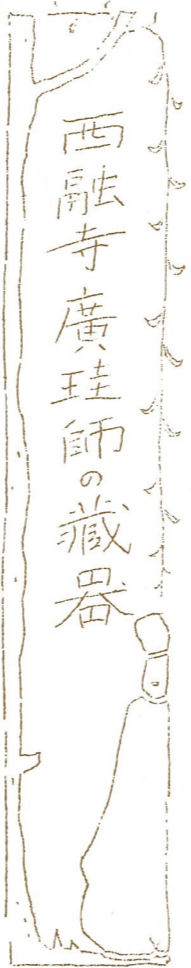 西融寺廣珪師の藏器